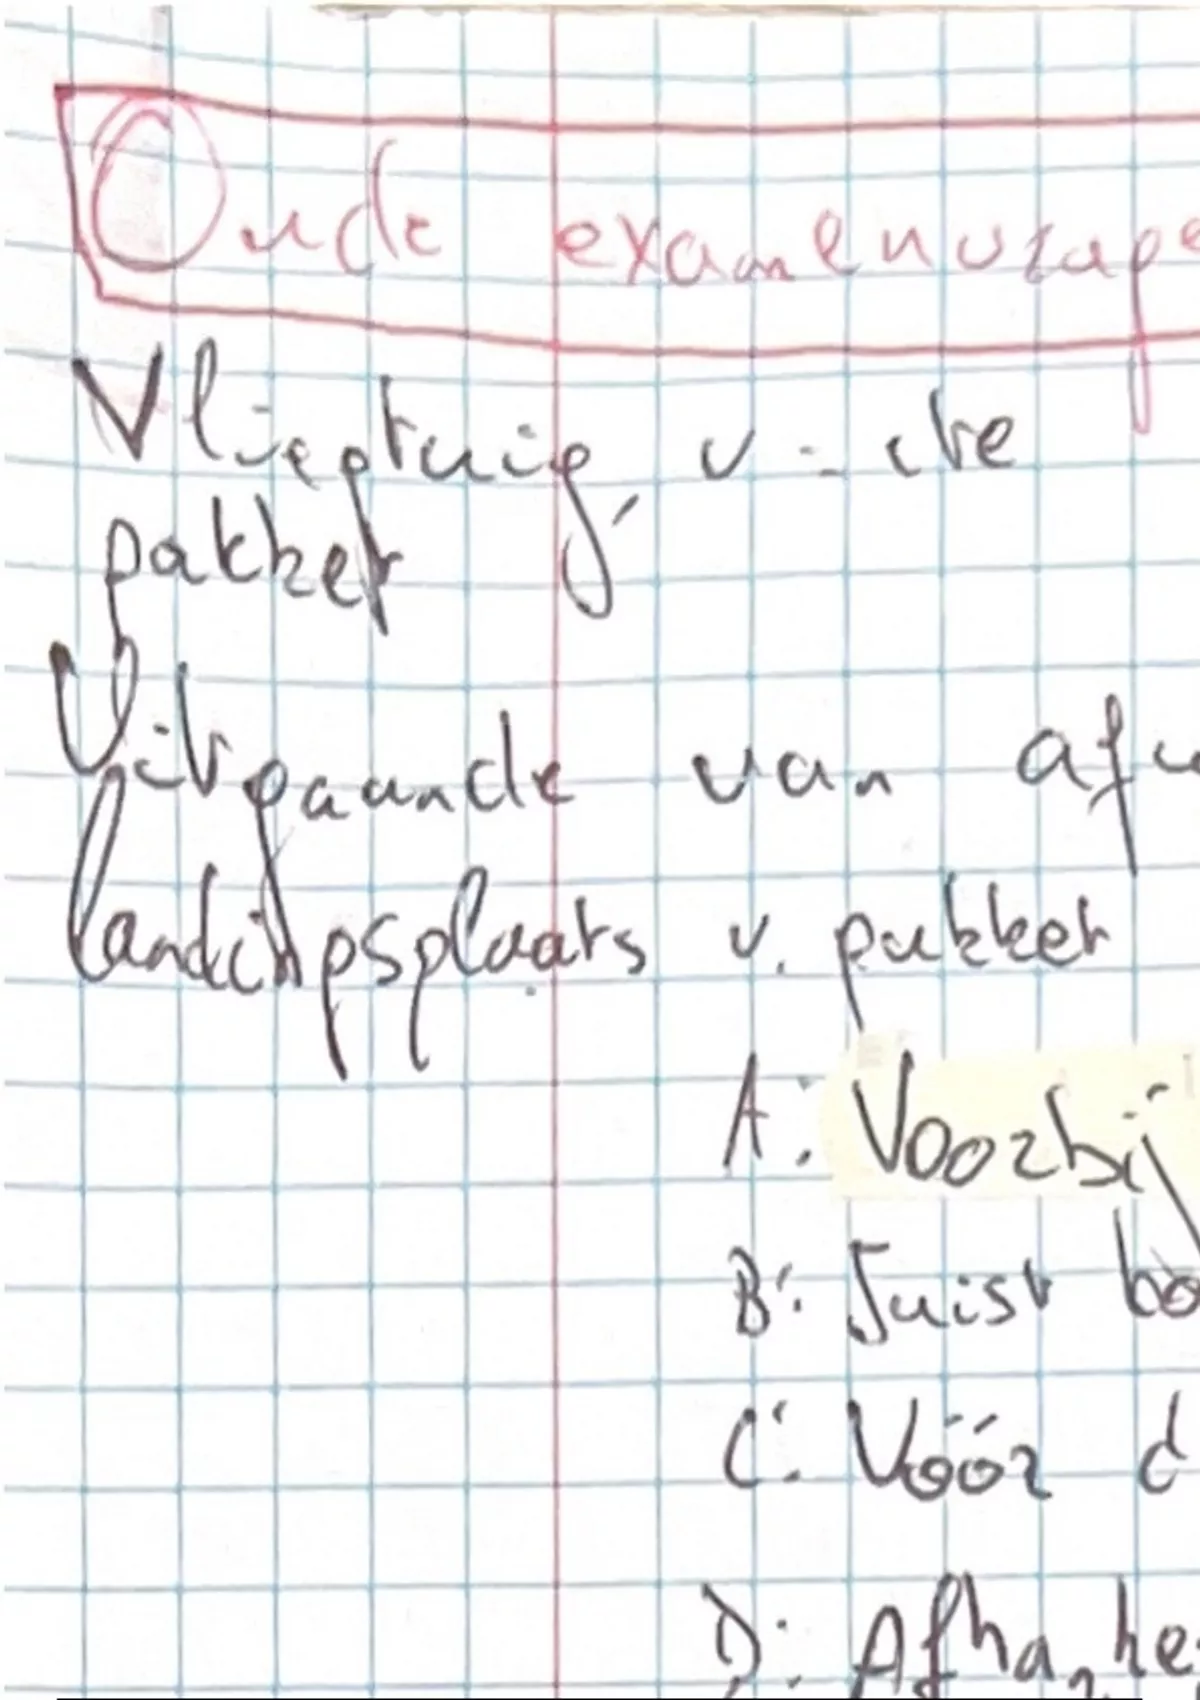 Oude examenvrage
Vliegtuig,
pakket
Uitgaande van afw
landingsplaats v. pakket
A: Voorbij
B: Juist bo
C: Vóór d
D: Afhanke